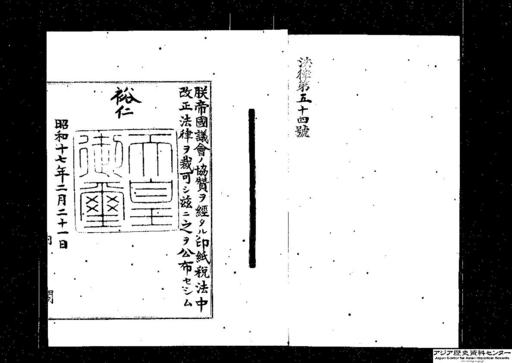 法律第五十四號
朕帝國議會ノ協贊ヲ經タル印紙稅法中
改正法律ヲ裁可シ玆ニ之ヲ公布セシム
裕仁
天皇
御璽
昭和十七年二月二十一日
内閣
アジア歴史資料センター
Japan Center for Asian Historical Records